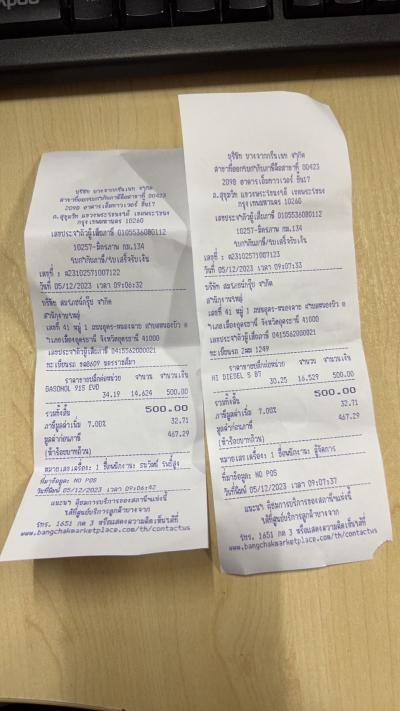 บริษัท บางจากกรีนเนท จำกัด
สาขาที่ออกใบกำกับภาษีคือสาขาที่ 00423
2098 อาคารเอ็มทาวเวอร์ ชั้น17
ถ.สุขุมวิท แขวงพระโขนงใต้ เขตพระโขนง
กรุงเทพมหานคร 10260
เลขประจำตัวผู้เสียภาษี 0105536080112
10257-มิตรภาพ กม.134
ใบกำกับภาษี/ใบเสร็จรับเงิน
เลขที่ : #23102571007122
วันที่ 05/12/2023 เวลา 09:06:32
บริษัท สมบูรณ์กรุ๊ป จำกัด
สำนักงานใหญ่
เลขที่ 41 หมู่ 1 ถนนอุดร-หนองคาย
อำเภอเมืองอุดรธานี จังหวัดอุดรธานี 41000
เลขประจำตัวผู้เสียภาษี 0415562000021
นครราชสีมา
ราคาขายปลีกต่อหน่วย จำนวน จำนวนเงิน
GASOHOL 91S EVO
34.19 14.624 500.00
รวมทั้งสิ้น 500.00
ภาษีมูลค่าเพิ่ม 7.00% 32.71
มูลค่าก่อนภาษี 467.29
(ห้าร้อยบาทถ้วน)
หมายเลขเครื่อง: 1 ชื่อพนักงาน:
ที่มาข้อมูล: NO POS
วันที่พิมพ์ 05/12/2023 เวลา 09:06:42
แนะนำ ติชมการบริการของสถานีฯแห่งนี้
ได้ที่ศูนย์บริการลูกค้าบางจาก
โทร. 1651 กด 3 หรือแสดงความคิดเห็นได้ที่
www.bangchakmarketplace.com/th/contactus
บริษัท บางจากกรีนเนท จำกัด
สาขาที่ออกใบกำกับภาษีคือสาขาที่ 00423
2098 อาคารเอ็มทาวเวอร์ ชั้น17
ถ.สุขุมวิท แขวงพระโขนงใต้ เขตพระโขนง
กรุงเทพมหานคร 10260
เลขประจำตัวผู้เสียภาษี 0105536080112
10257-มิตรภาพ กม.134
ใบกำกับภาษี/ใบเสร็จรับเงิน
เลขที่ : #23102571007123
วันที่ 05/12/2023 เวลา 09:07:33
บริษัท สมบูรณ์กรุ๊ป จำกัด
สำนักงานใหญ่
เลขที่ 41 หมู่ 1 ถนนอุดร-หนองคาย
อำเภอเมืองอุดรธานี จังหวัดอุดรธานี 41000
เลขประจำตัวผู้เสียภาษี 0415562000021
1249
ราคาขายปลีกต่อหน่วย จำนวน จำนวนเงิน
HI DIESEL S B7
30.25 16.529 500.00
รวมทั้งสิ้น 500.00
ภาษีมูลค่าเพิ่ม 7.00% 32.71
มูลค่าก่อนภาษี 467.29
(ห้าร้อยบาทถ้วน)
หมายเลขเครื่อง: 1 ชื่อพนักงาน: ผู้จัดการ
ที่มาข้อมูล: NO POS
วันที่พิมพ์ 05/12/2023 เวลา 09:07:37
แนะนำ ติชมการบริการของสถานีฯแห่งนี้
ได้ที่ศูนย์บริการลูกค้าบางจาก
โทร. 1651 กด 3 หรือแสดงความคิดเห็นได้ที่
www.bangchakmarketplace.com/th/contactus